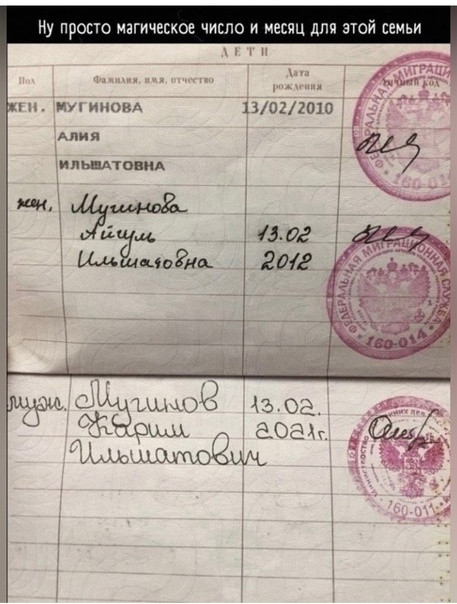 Ну просто магическое число и месяц для этой семьи
ДЕТИ
Пол Фамилия, имя, отчество Дата рождения Личный код
ЖЕН. МУГИНОВА 13/02/2010
АЛИЯ
ИЛЬШАТОВНА
жен. Мугинова
Айгуль 13.02
Ильшатовна 2012
ФЕДЕРАЛЬНАЯ МИГРАЦИОННАЯ СЛУЖБА
160-014
муж. Мугинов 13.02.
Карим 2021г.
Ильшатович
160-011